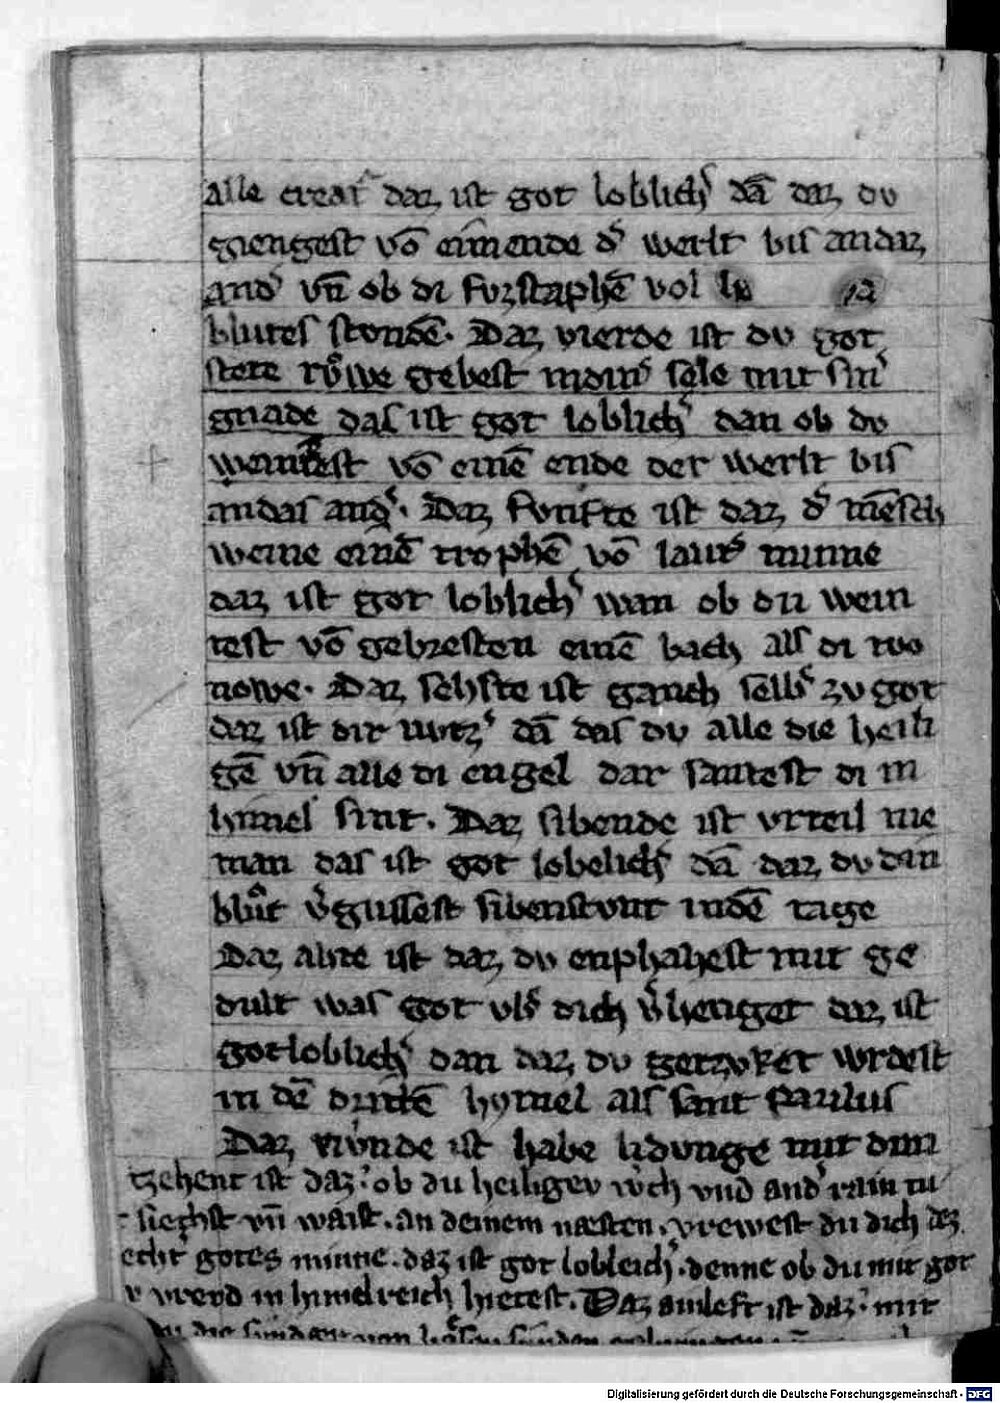 alle creat᷑ daz ist got loblich᷑ dā daz du
giengest vō eimende d᷑ werlt bis andaz
and᷑ vn̄ ob di fuzstaphē vol
blutes stondē. Daz vierde ist du got
stete růwe gebest in din᷑ sele mit sin᷑
gnade das ist got loblich᷑ dan ob du
weintest vō einē ende der werlt bis
andas and᷑. Daz funfte ist daz d᷑ mēsch
weine einē trophē vō laut᷑ minne
daz ist got loblich᷑ wan ob du wein
test vō gebresten einē bach als di tuo
nowe. Daz sehste ist ganch selb᷑ zu got
daz ist dir nvtz᷑ dā das du alle die heili
gē vn̄ alle di engel dar santest di in
himel sint. Daz sibende ist vrteil nie
man das ist got lobelich᷑ dā daz du din
blůt v᷑gussest sibenstunt indē tage
Daz ahte ist daz du enphahest mit ge
dult was got vb᷑ dich v᷑henget daz ist
got loblich᷑ dan daz du getzvket wrdest
in dē dritē hymel als sant Paulus
Daz nivnde ist habe lidunge mit dim
tzehent ist daz. ob du heiligev vnd and᷑
siechst vn̄ waist. an deinem næsten. vrewest du dich dez
echt᷑ gotes minne. daz ist got lobleich᷑. denne ob du mit got
vrevd in himelreich hietest. Daz ainleft ist daz. mit